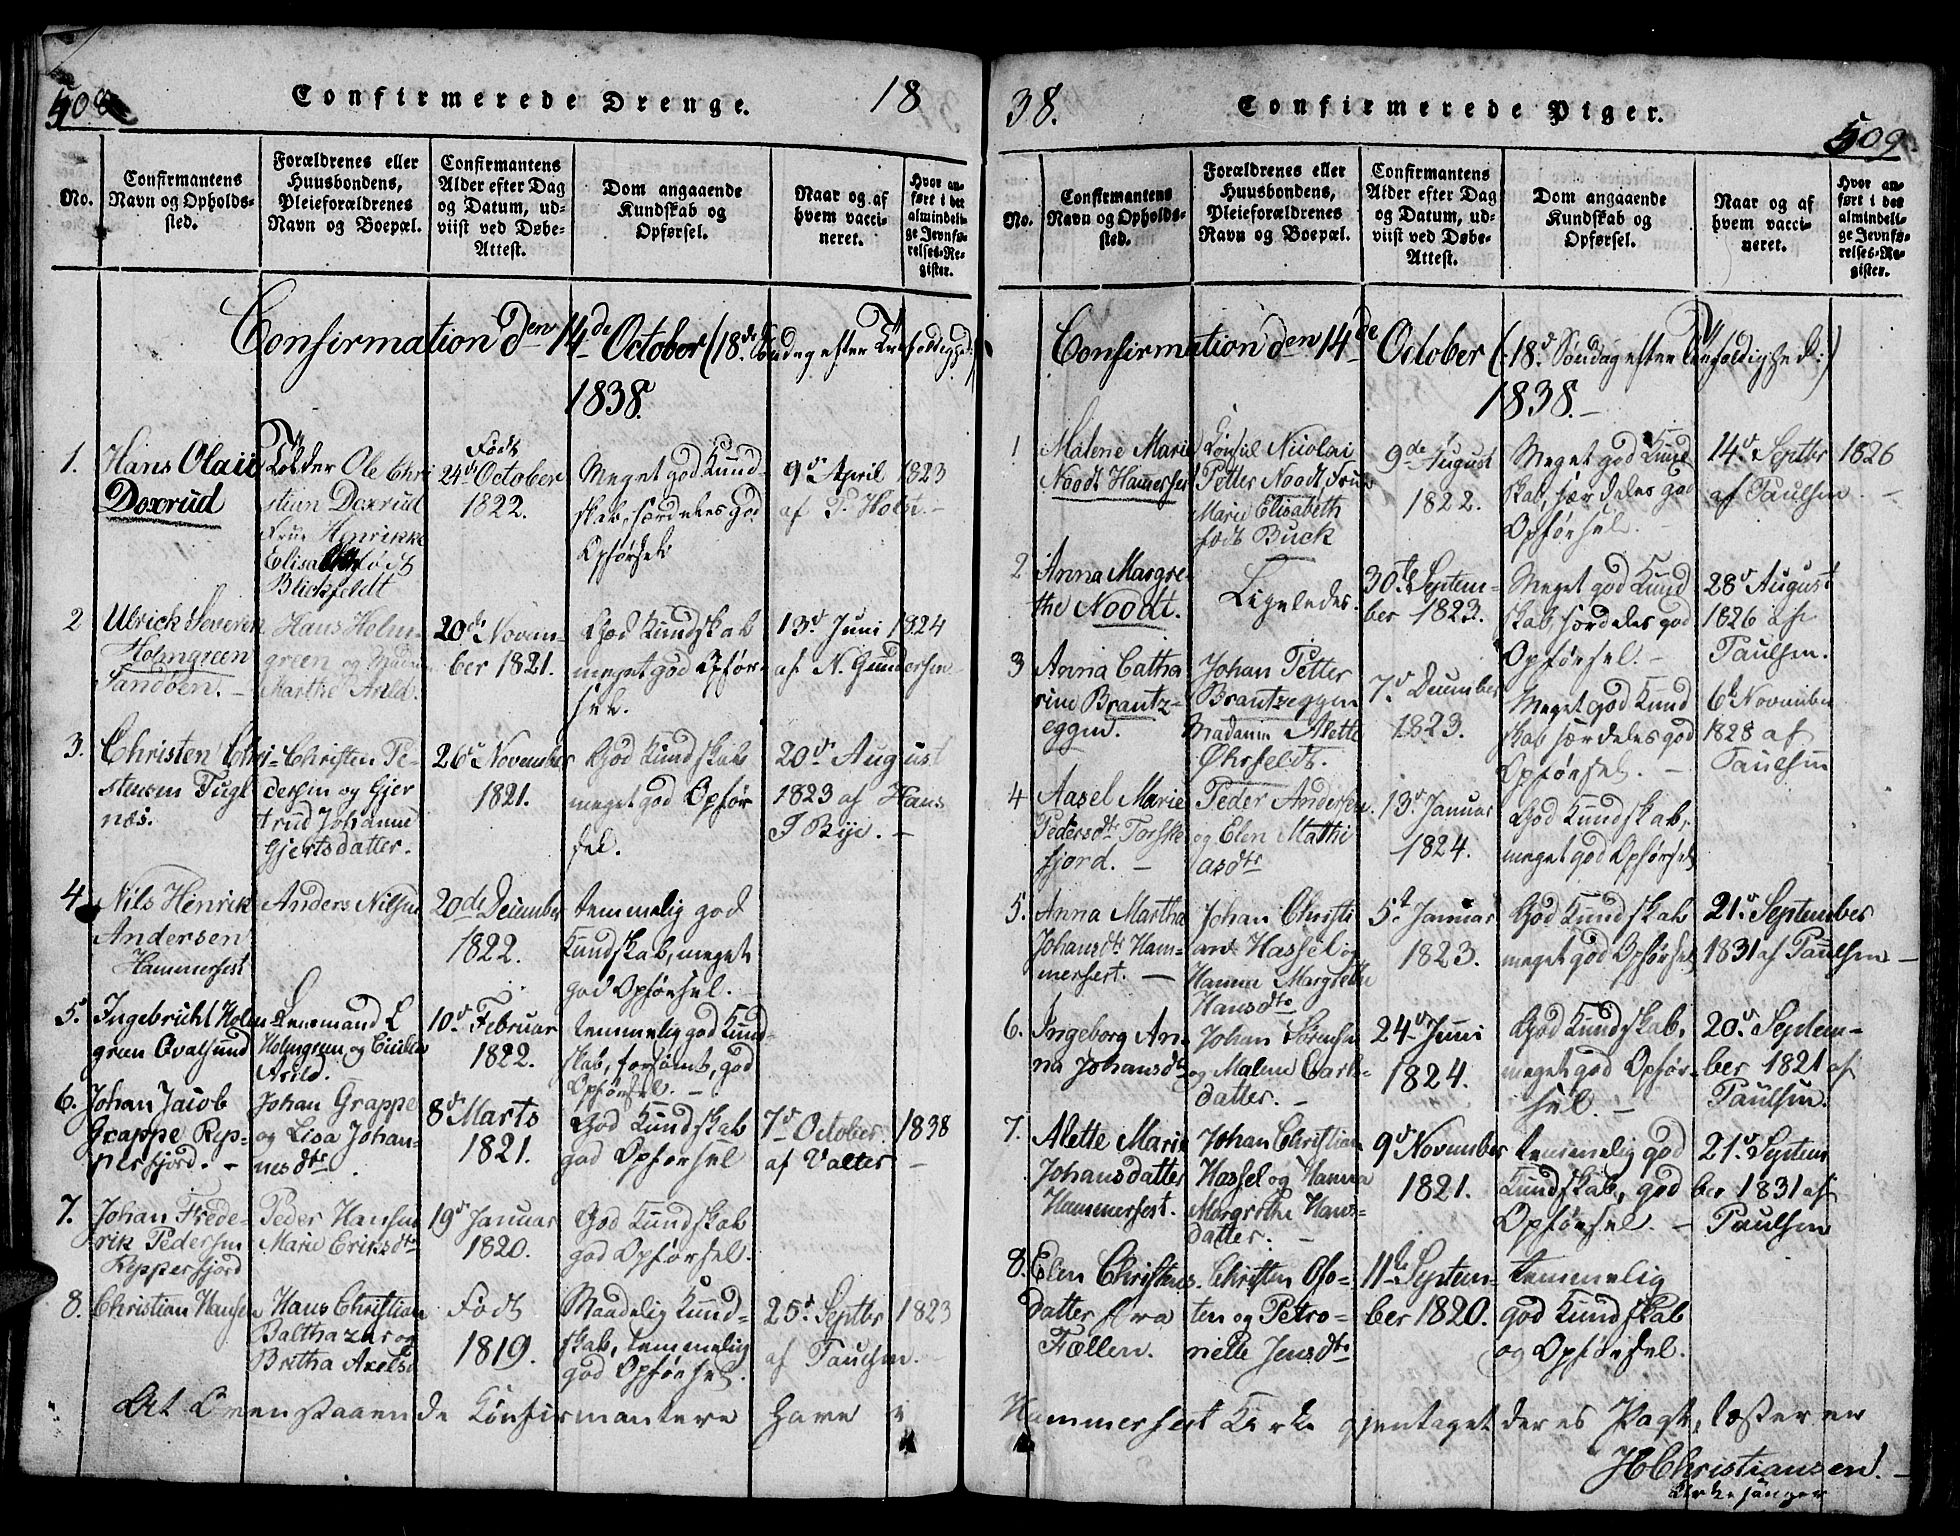 508
Confirmerede Drenge.
18
No.
Confirmantens
Navn og Opholds-
sted.
Forældrenes eller
Huusbondens,
Pleieforældrenes
Navn og Boepæl.
Confirmantens
Alder efter Dag
og Datum, ud-
viist ved Døbe-
Attest.
Dom angaaende
Kundskab og
Opførsel.
Naar og af
hvem vacci-
neret.
Hvor an-
ført i det
almindeli-
ge Jevnfø-
relses-Re-
gister.
Confirmation den 14de October (18de Søndag efter Trefoldighed)
1838.
1.
Hans Olaii
Doxrud
Tolder Ole Chri
stian Doxrud
Frue Henrikke
Elisabeth født
Blickfeldt
Født
24de October
1822.
Meget god Kund-
skab, særdeles god
Opførsel
9d April 1823
af P. Holst.-
2
Ulrick Severin
Holmgreen
Sandøen. -
Hans Holm-
green og Madm
Marthe Arild.
20de Novem-
ber 1821.
God Kundskab
meget god Opfør-
sel.
13d Juni 1824
af N. Gundersen
3.
Christen Chri-
stensen Fugl
næs.
Christen Pe-
dersen og Gjer
trud Johanne
Gjertsdatter.
26d November
1821.
God Kundskab
meget god Opfør
sel.
20d August
1823 af Hans
J Bye. -
4
Nils Henrik
Andersen
Hammerfest
Anders Nilsen
20de December
1822.
temmelig god
Kundskab, meget
god Opførsel.
5.
Ingebricht Holm
green Qvalsund
Lensmand E
Holmgreen og Cicilia
Arild.
10d Februar
1822.
temmelig god Kund-
skab, forsømt, god
Opførsel. -
6.
Johan Jacob
Grappe Rep-
perfjord. -
Johan Grappe
og Lisa Johan-
nesdtr.
8d Marts
1821.
God Kundskab
god Opførsel
7d October 1838
af Valter -
7.
Johan Frede-
rik Pedersen
Repperfjord
Peder Hansen
Marie Eriksdtr
19d Januar
1820.
God Kundskab
god Opførsel.
8.
Christian Hansen
Hans Christian
Balthazar og
Britha Axelsd
Født
1819.
Maadelig Kund-
skab, temmelig
god Opførsel.
25d Septbr 1823
af Paulsen.
At Ovenstaaende Konfirmantere have i
38.
Confirmerede Piger.
509
No.
Confirmantens
Navn og Opholds-
sted.
Forældrenes eller
Huusbondens,
Pleieforældrenes
Navn og Boepæl.
Confirmantens
Alder efter Dag
og Datum, ud-
viist ved Døbe-
Attest.
Dom angaaende
Kundskab og
Opførsel.
Naar og af
hvem vacci-
neret.
Hvor an-
ført i det
almindeli-
ge Jevnfø-
relses-Re-
gister.
Confirmation den 14de October (18d Søndag efter Trefoldighed:)
1838.-
1
Malene Marie
Noodt Hammerfest
Consul Nicolai
Petter Noodt, Frue
Marie Elisabeth
født Buck
9de August
1822.
Meget god Kund
skab, særdeles god
Opførsel. -
14d Septbr 1826
af Paulsen. -
2
Anna Margre-
the Noodt.
Ligeledes.
30te Septem-
ber 1823.
Meget god Kund
skab, særdeles god
Opførsel. -
28d August
1826 af
Paulsen.
3
Anna Catha
rine Brantz-
eggen.
Johan Petter
Brantzeggen
Madame Alette
Øhrfeldt.
7d December
1823.
Meget god Kund
skab særdeles god
Opførsel. -
6t November
1828 af
Paulsen
4
Aasel Marie
Pedersdtr Torske
fjord. -
Peder Andersen
og Elen Mathi
asdtr
13d Januar
1824.
God Kundskab,
meget god Opførsel
5.
Anna Martha
Johansdtr Ham-
merfest. -
Johan Christi
an Hassel og
Hanna Margrethe
Hansdtr
5t Januar
1823.
God Kundskab
meget god Opførsel
21d September
1831 af Paulsen -
6.
Ingeborg An-
na Johansdtr
Johan Sørensen
og Malene Carls-
datter. -
24d Juni
1824.
God Kundskab,
meget god Opfør-
sel. -
20d Septem-
ber 1821 af
Paulsen.
7.
Alette Marie
Johansdatter
Hammerfest.
Johan Christian
Hassel og Hanna
Margrethe Hans-
datter. -
9d November
1821.
temmelig god
Kundskab, god
Opførsel. -
21d Septem
ber 1831 af
Paulsen
8.
Elen Christens-
datter fra
Fællen.
Christen Ofo-
ten og Petro-
nelle Jensdtr
11te Septem-
ber 1820.
temmelig
god Kundskab
og Opførsel.
Hammerfest Kirke gjentaget deres Pagt, læster en
HChristiansen. -
Kirkesanger